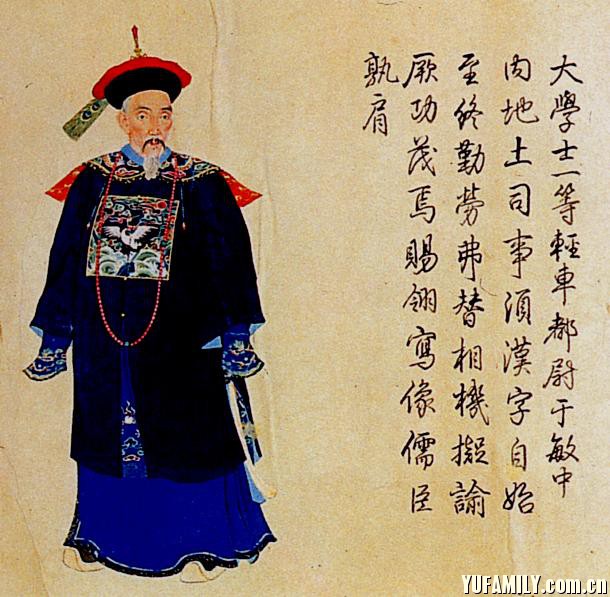 大學士一等輕車都尉于敏中
内地土司事須漢字自始
至終勤勞弗替相機擬諭
厥功茂焉賜翎寫像儒臣
孰肩
YUFAMILY.com.cn